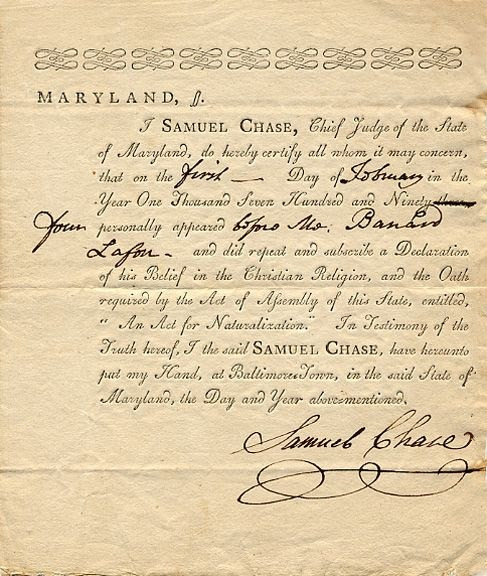 MARYLAND, ſſ.
I SAMUEL CHASE, Chief Judge of the State
of Maryland, do hereby certify all whom it may concern,
that on the first — Day of February in the
Year One Thousand Seven Hundred and Ninety three
four personally appeared before Me, Banard
Lafon - and did repeat and subscribe a Declaration
of his Belief in the Christian Religion, and the Oath
required by the Act of Aſſembly of this State, entitled,
" An Act for Naturalization." In Testimony of the
Truth hereof, I the said SAMUEL CHASE, have hereunto
put my Hand, at Baltimore-Town, in the said State of
Maryland, the Day and Year above-mentioned.
Samuel Chase